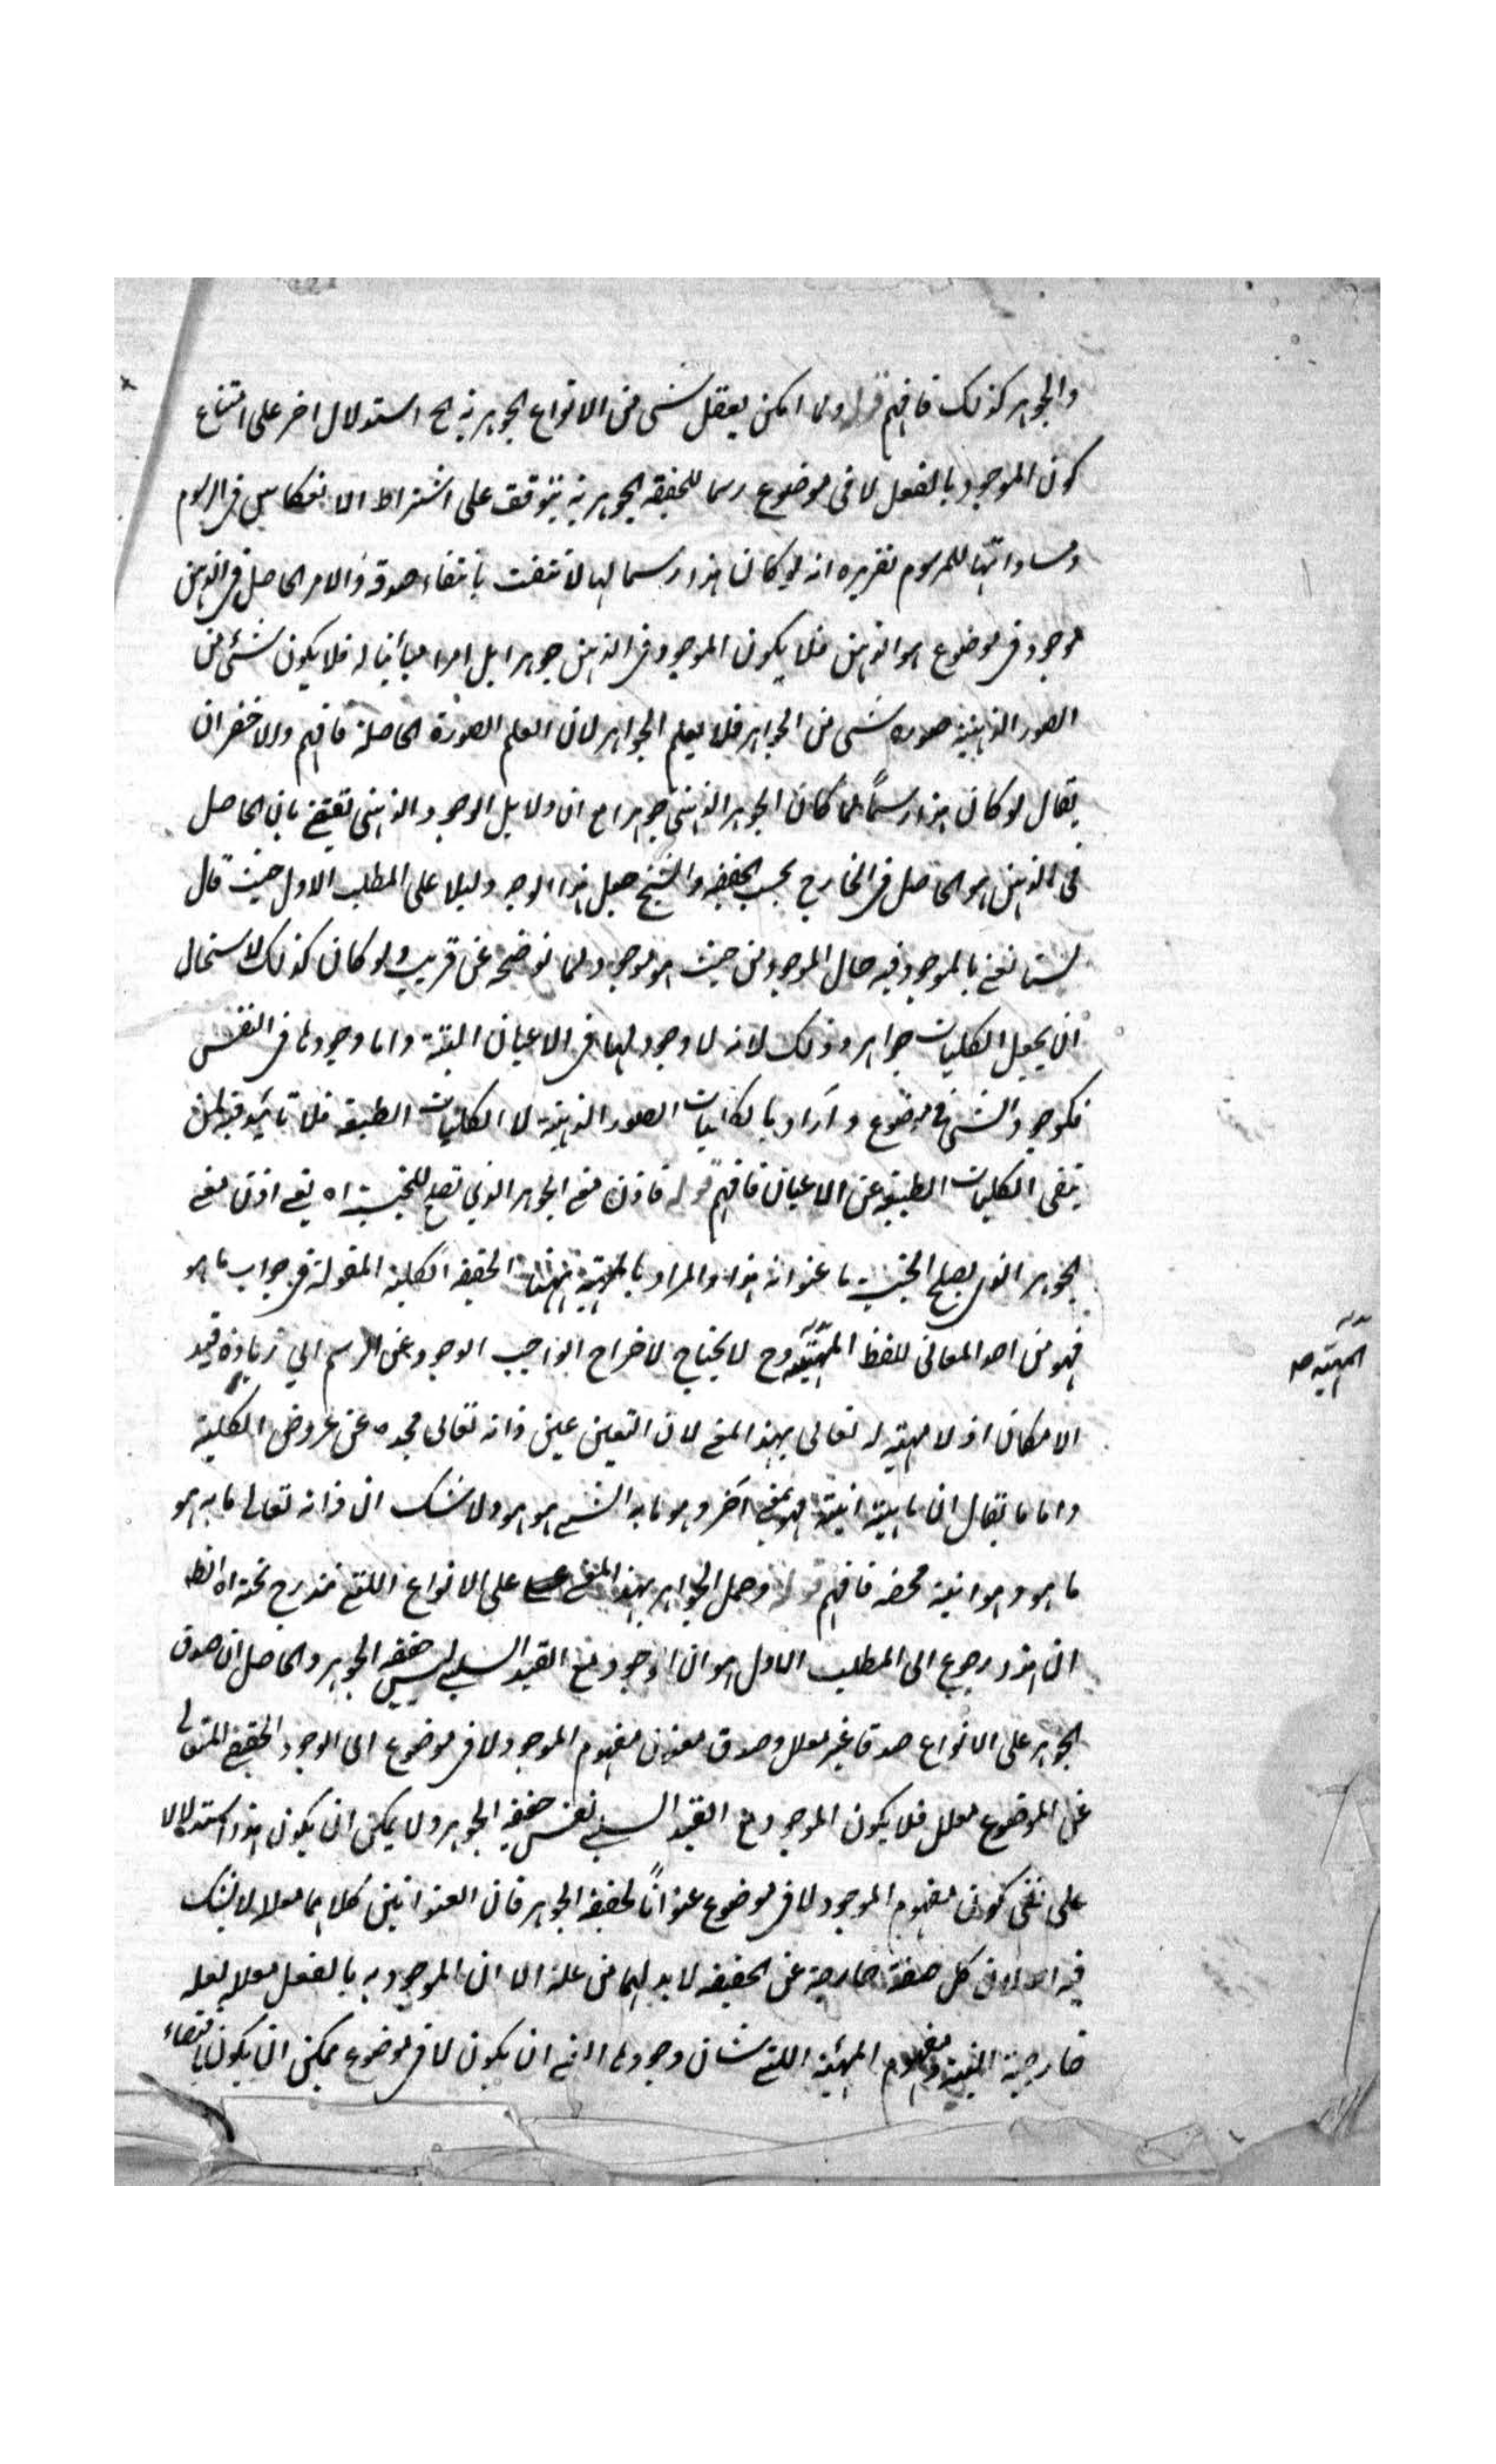 والجوهر كذلك فافهم قوله ولا امكن يعقل شى من الانواع الجوهرية الخ استدلال اخر على امتناع
كون الموجود بالفعل لا فى موضوع رسما للحقيقه الجوهرية يتوقف على اشتراط الانعكاس فى الرسوم
ومساواتها للمرسوم تقريره انه لو كان هذا رسما لها لانتفت بانتفاء صدقه والامر الحاصل فى الذهن
موجود فى موضوع هو الذهن فلا يكون الموجود فى الذهن جوهرا بل امرا مباينا له فلا يكون شئ من
الصور الذهنية صوره شى من الجواهر فلا يعلم الجواهر لان العلم الصورة الحاصلة فافهم والاخضر ان
يقال لو كان هذا رسماً لما كان الجوهر الذهنى جوهرا مع ان دلايل الوجود الذهنى تقتضى بان الحاصل
فى الذهن هو الحاصل فى الخارج بحسب الحقيقه والشيخ جعل هذا الوجه دليلا على المطلب الاول حيث قال
لسنا نعنى بالموجود فيه حال الموجود من حيث هو موجود لما نوضحه عن قريب ولو كان كذلك لاستحال
ان يجعل الكليات جواهر وذلك لانه لا وجود لها فى الاعيان البتة وانما وجودها فى النفس
فكوجود الشى فى موضوع واراد بالكليات الصور الذهنية لا الكليات الطبيعه فلا تائيد فيه لمن
ينفى الكليات الطبيعيه عن الاعيان فافهم قوله فاذن معنى الجوهر الذى تصلح للجنسية اه يعنى اذن معنى
الجوهر الذى يصلح الجنسية ما عنوانه هذا والمراد بالمهيّة ههنا الحقيقه الكلية المقولة فى جواب ما هو
فهو من احد المعانى للفظ المهيّة وح لا يحتاج لاخراج الواجب الوجود عن الرسم الى زيادة قيد
المهيّة صه
الامكان اذ لا مهية له تعالى بهذا المعنى لان التعين عين ذاته تعالى مجده عن عروض الكلية
واما ما يقال ان ماهيته انيته فهو بمعنى آخر وهو ما به الشى هو هو ولا شك ان ذاته تعالى ما به هو
ما هو وهو انية محضه فافهم قوله وحمل الجواهر بهذا المعنى على الانواع اللتى مندرج تحته اه الظ
ان هذا رجوع الى المطلب الاول هو ان الوجود مع القيد السلبى ليس حقيقه الجوهر والحاصل ان صدق
الجوهر على الانواع صدقا غير معلل وصدق مفهوم الموجود لا فى موضوع اى الوجود الحقيقى المتعالى
عن الموضوع معلل فلا يكون الموجود مع القيد السلبى نفس حقيقه الجوهر ولا يمكن ان يكون هذا استدلالا
على نفى كون مفهوم الموجود لا فى موضوع عنواناً لحقيقة الجوهر فان العنوانين كلاهما معلل لا شك
فيه لان كل صفة خارجة عن الحقيقه لابد لهما من علة الا ان الموجودية بالفعل معلله بعله
خارجية البتة ومفهوم المهية اللتى شان وجودها الذى ان يكون لا فى موضوع يمكن ان يكون باقتضاء